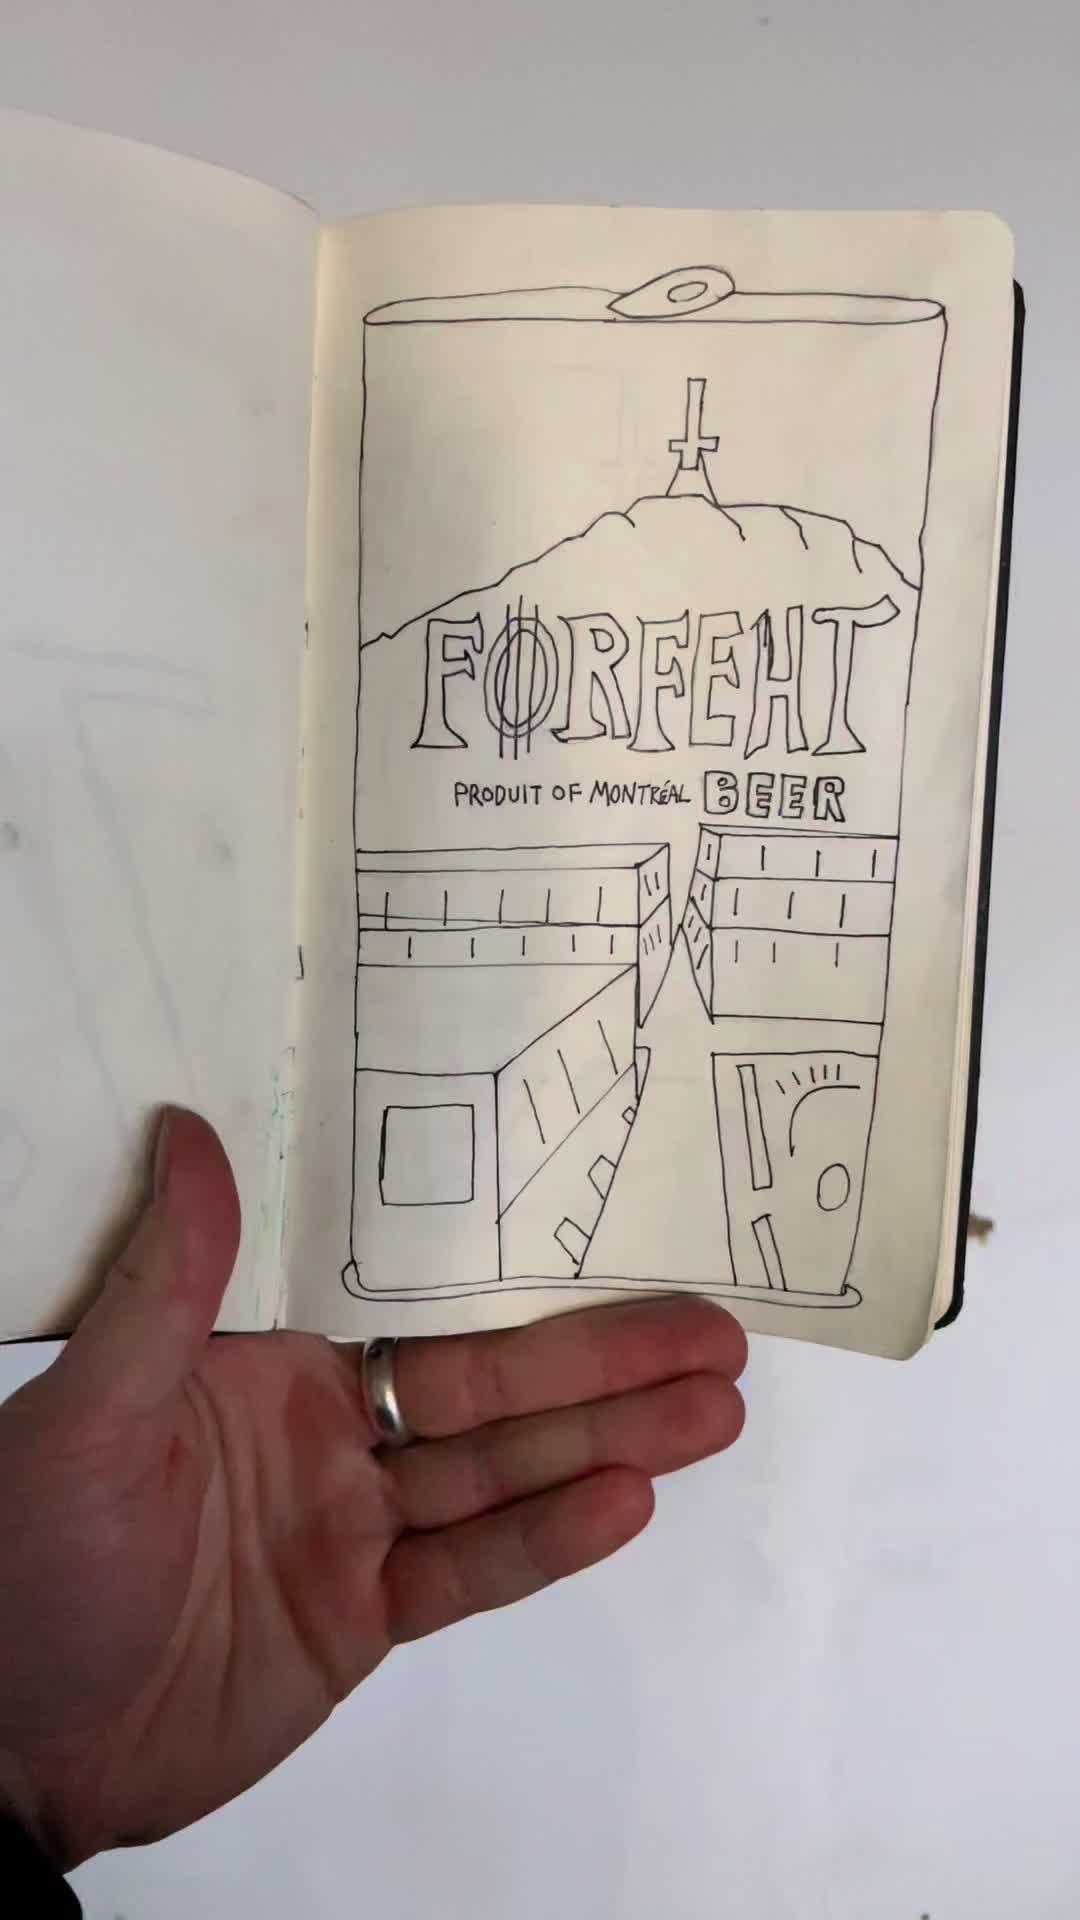 FORFEHT
PRODUIT OF MONTRÉAL BEER